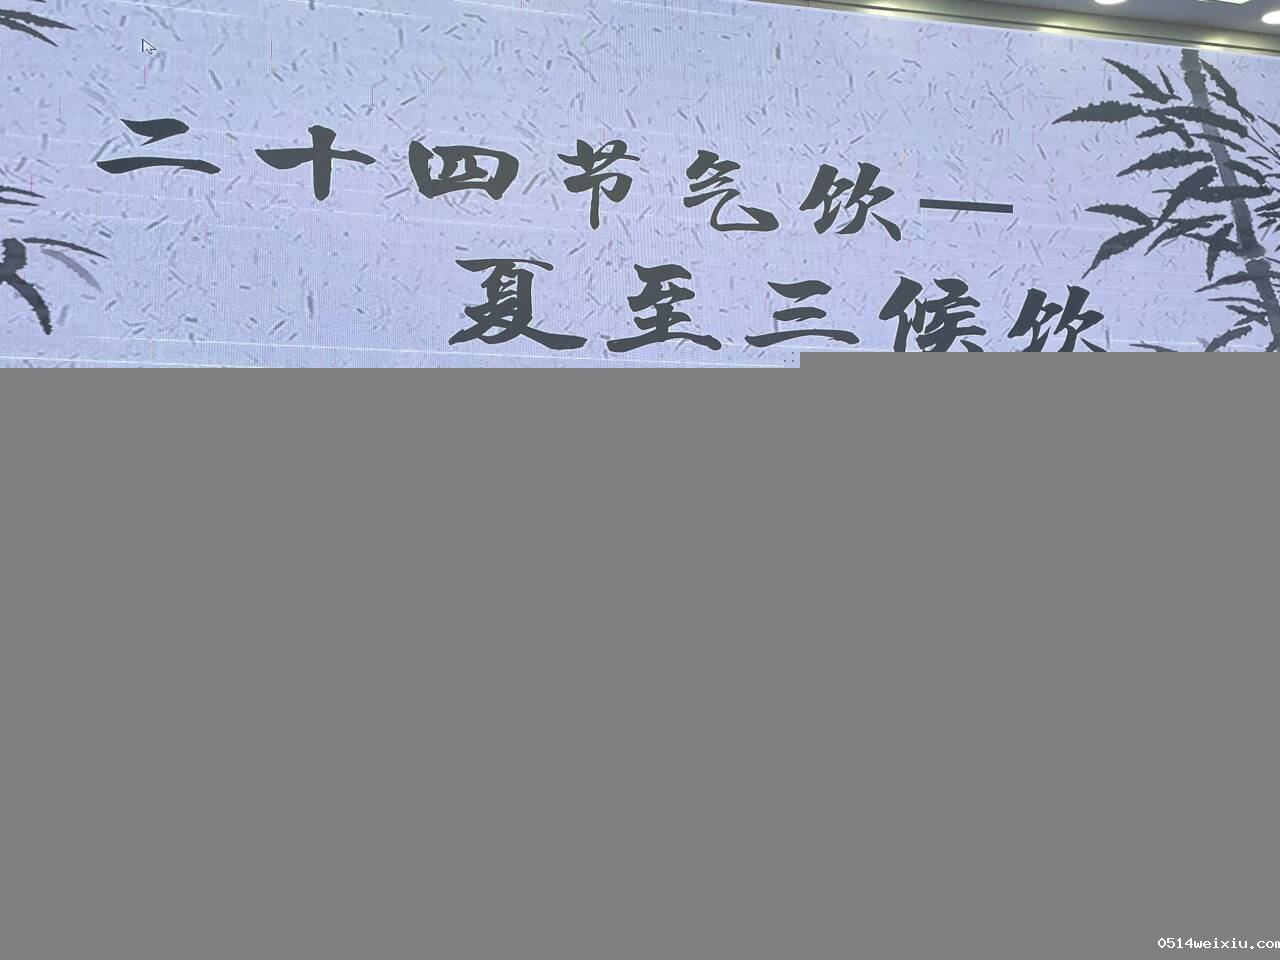 二十四节气饮—
夏至三候饮
0514weixiu.com